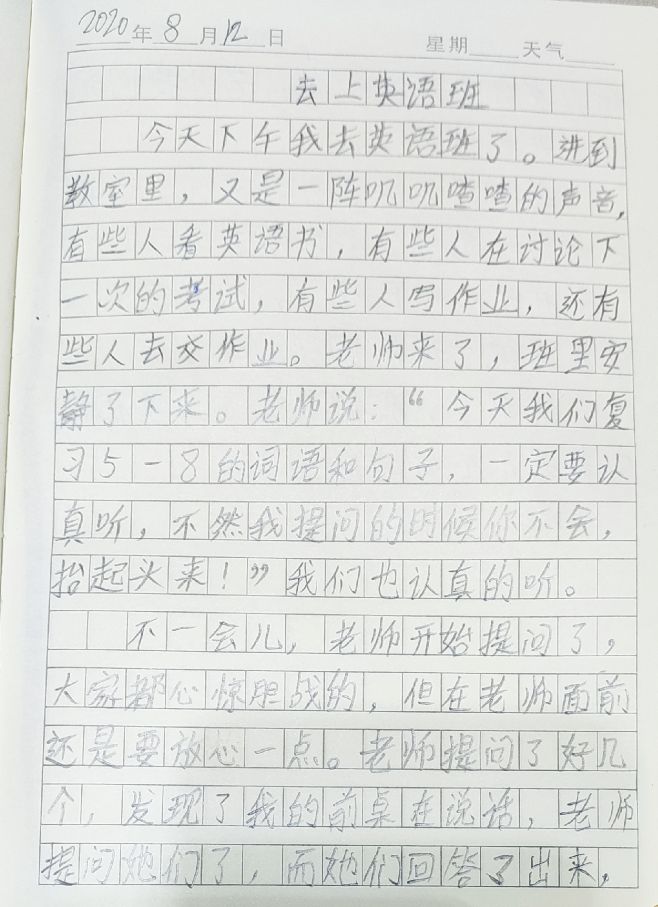 2020年8月12日 星期 天气
去上英语班
今天下午我去英语班了。进到
教室里，又是一阵叽叽喳喳的声音，
有些人看英语书，有些人在讨论下
一次的考试，有些人写作业，还有
些人去交作业。老师来了，班里安
静了下来。老师说：“今天我们复
习5-8的词语和句子，一定要认
真听，不然我提问的时候你不会，
抬起头来！”我们也认真的听。
不一会儿，老师开始提问了，
大家都心惊胆战的，但在老师面前
还是要放心一点。老师提问了好几
个，发现了我的前桌在说话，老师
提问她们了，而她们回答了出来，